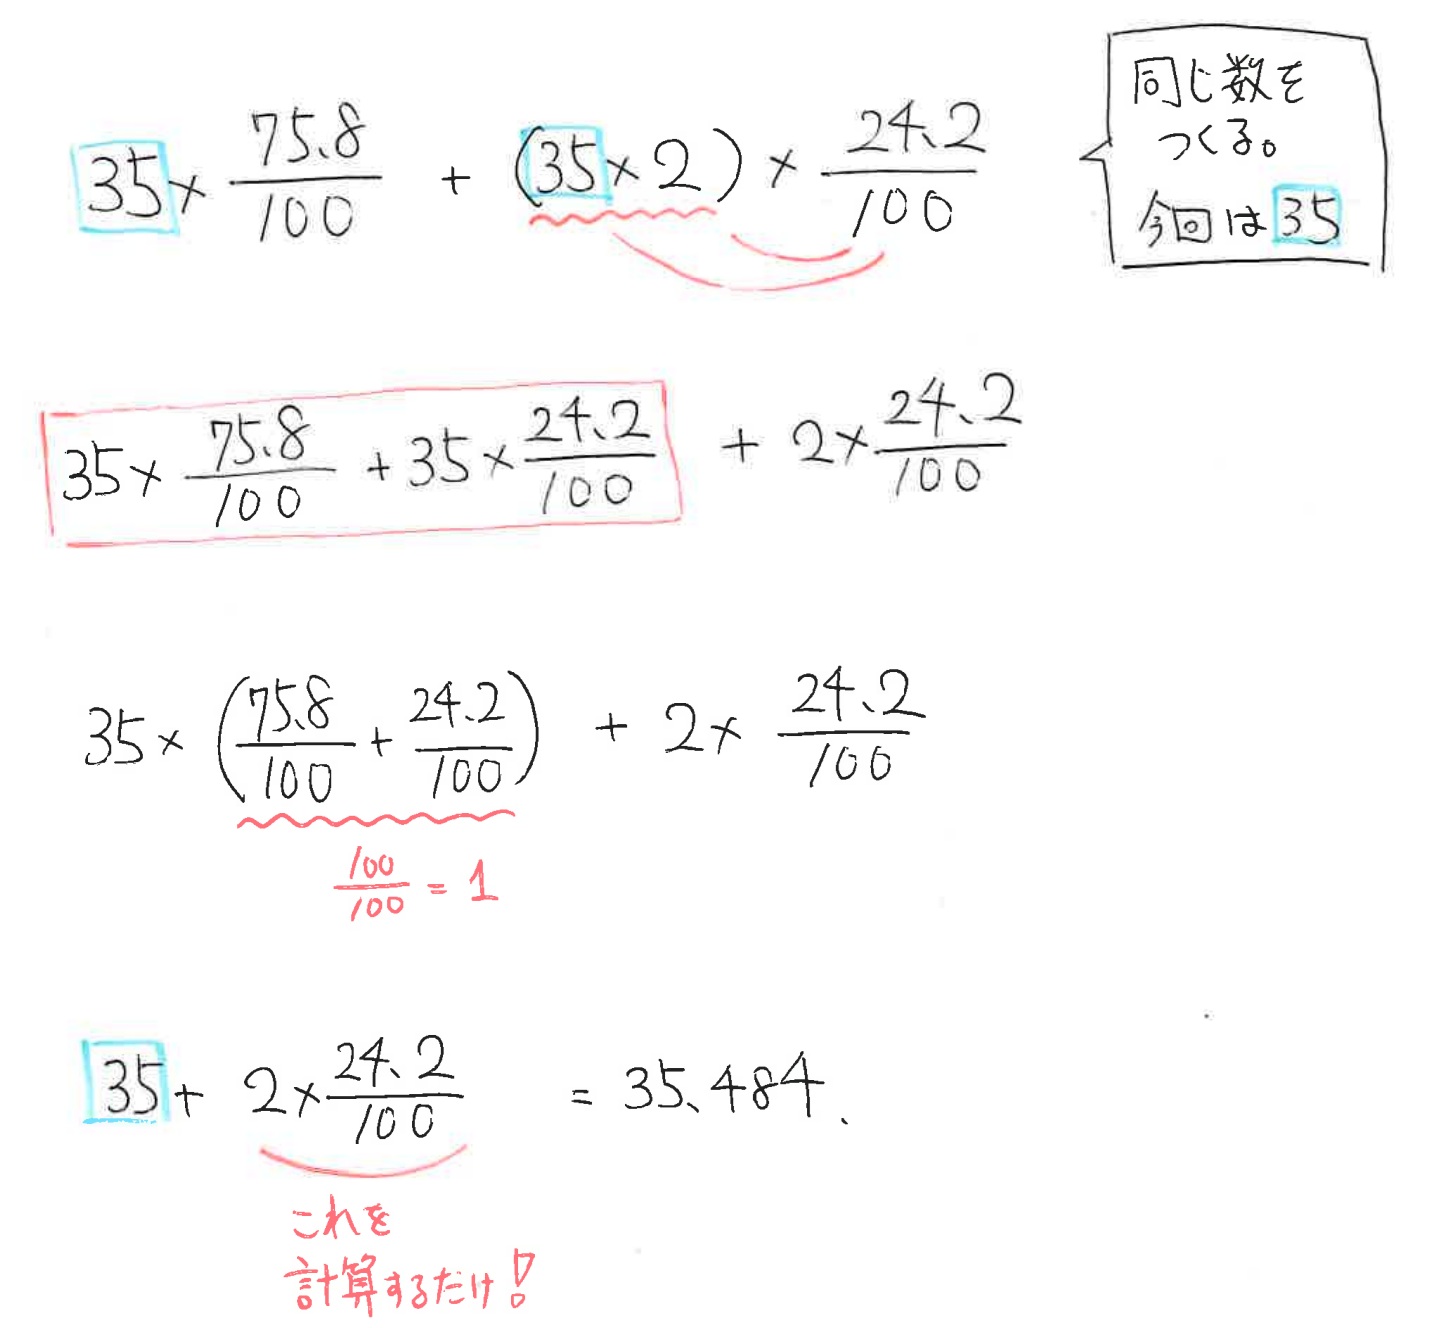 35 × 75.8/100 + (35 × 2) × 24.2/100
同じ数を
つくる。
今回は 35
35 × 75.8/100 + 35 × 24.2/100 + 2 × 24.2/100
35 × (75.8/100 + 24.2/100) + 2 × 24.2/100
100/100 = 1
35 + 2 × 24.2/100 = 35.484.
これを
計算するだけ!